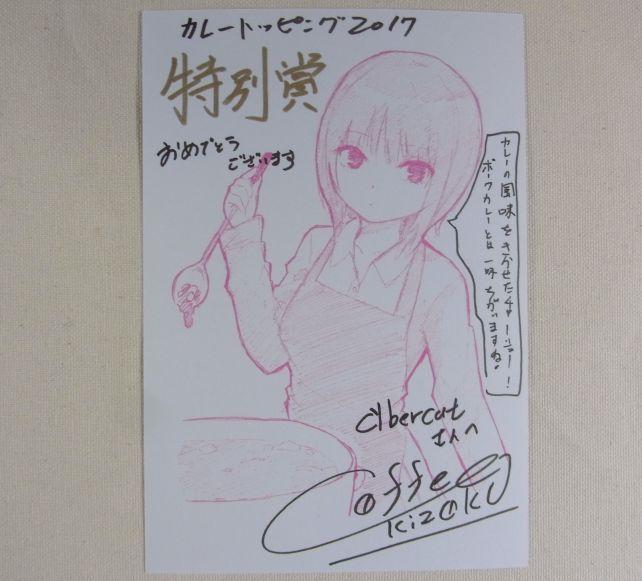 カレートッピング2017
特別賞
おめでとう
ございます
カレーの風味をきかせたチャーシュー!
ポークカレーとは一味ちがいますね。
Cybercat
さんへ
Coffee
Kizoku